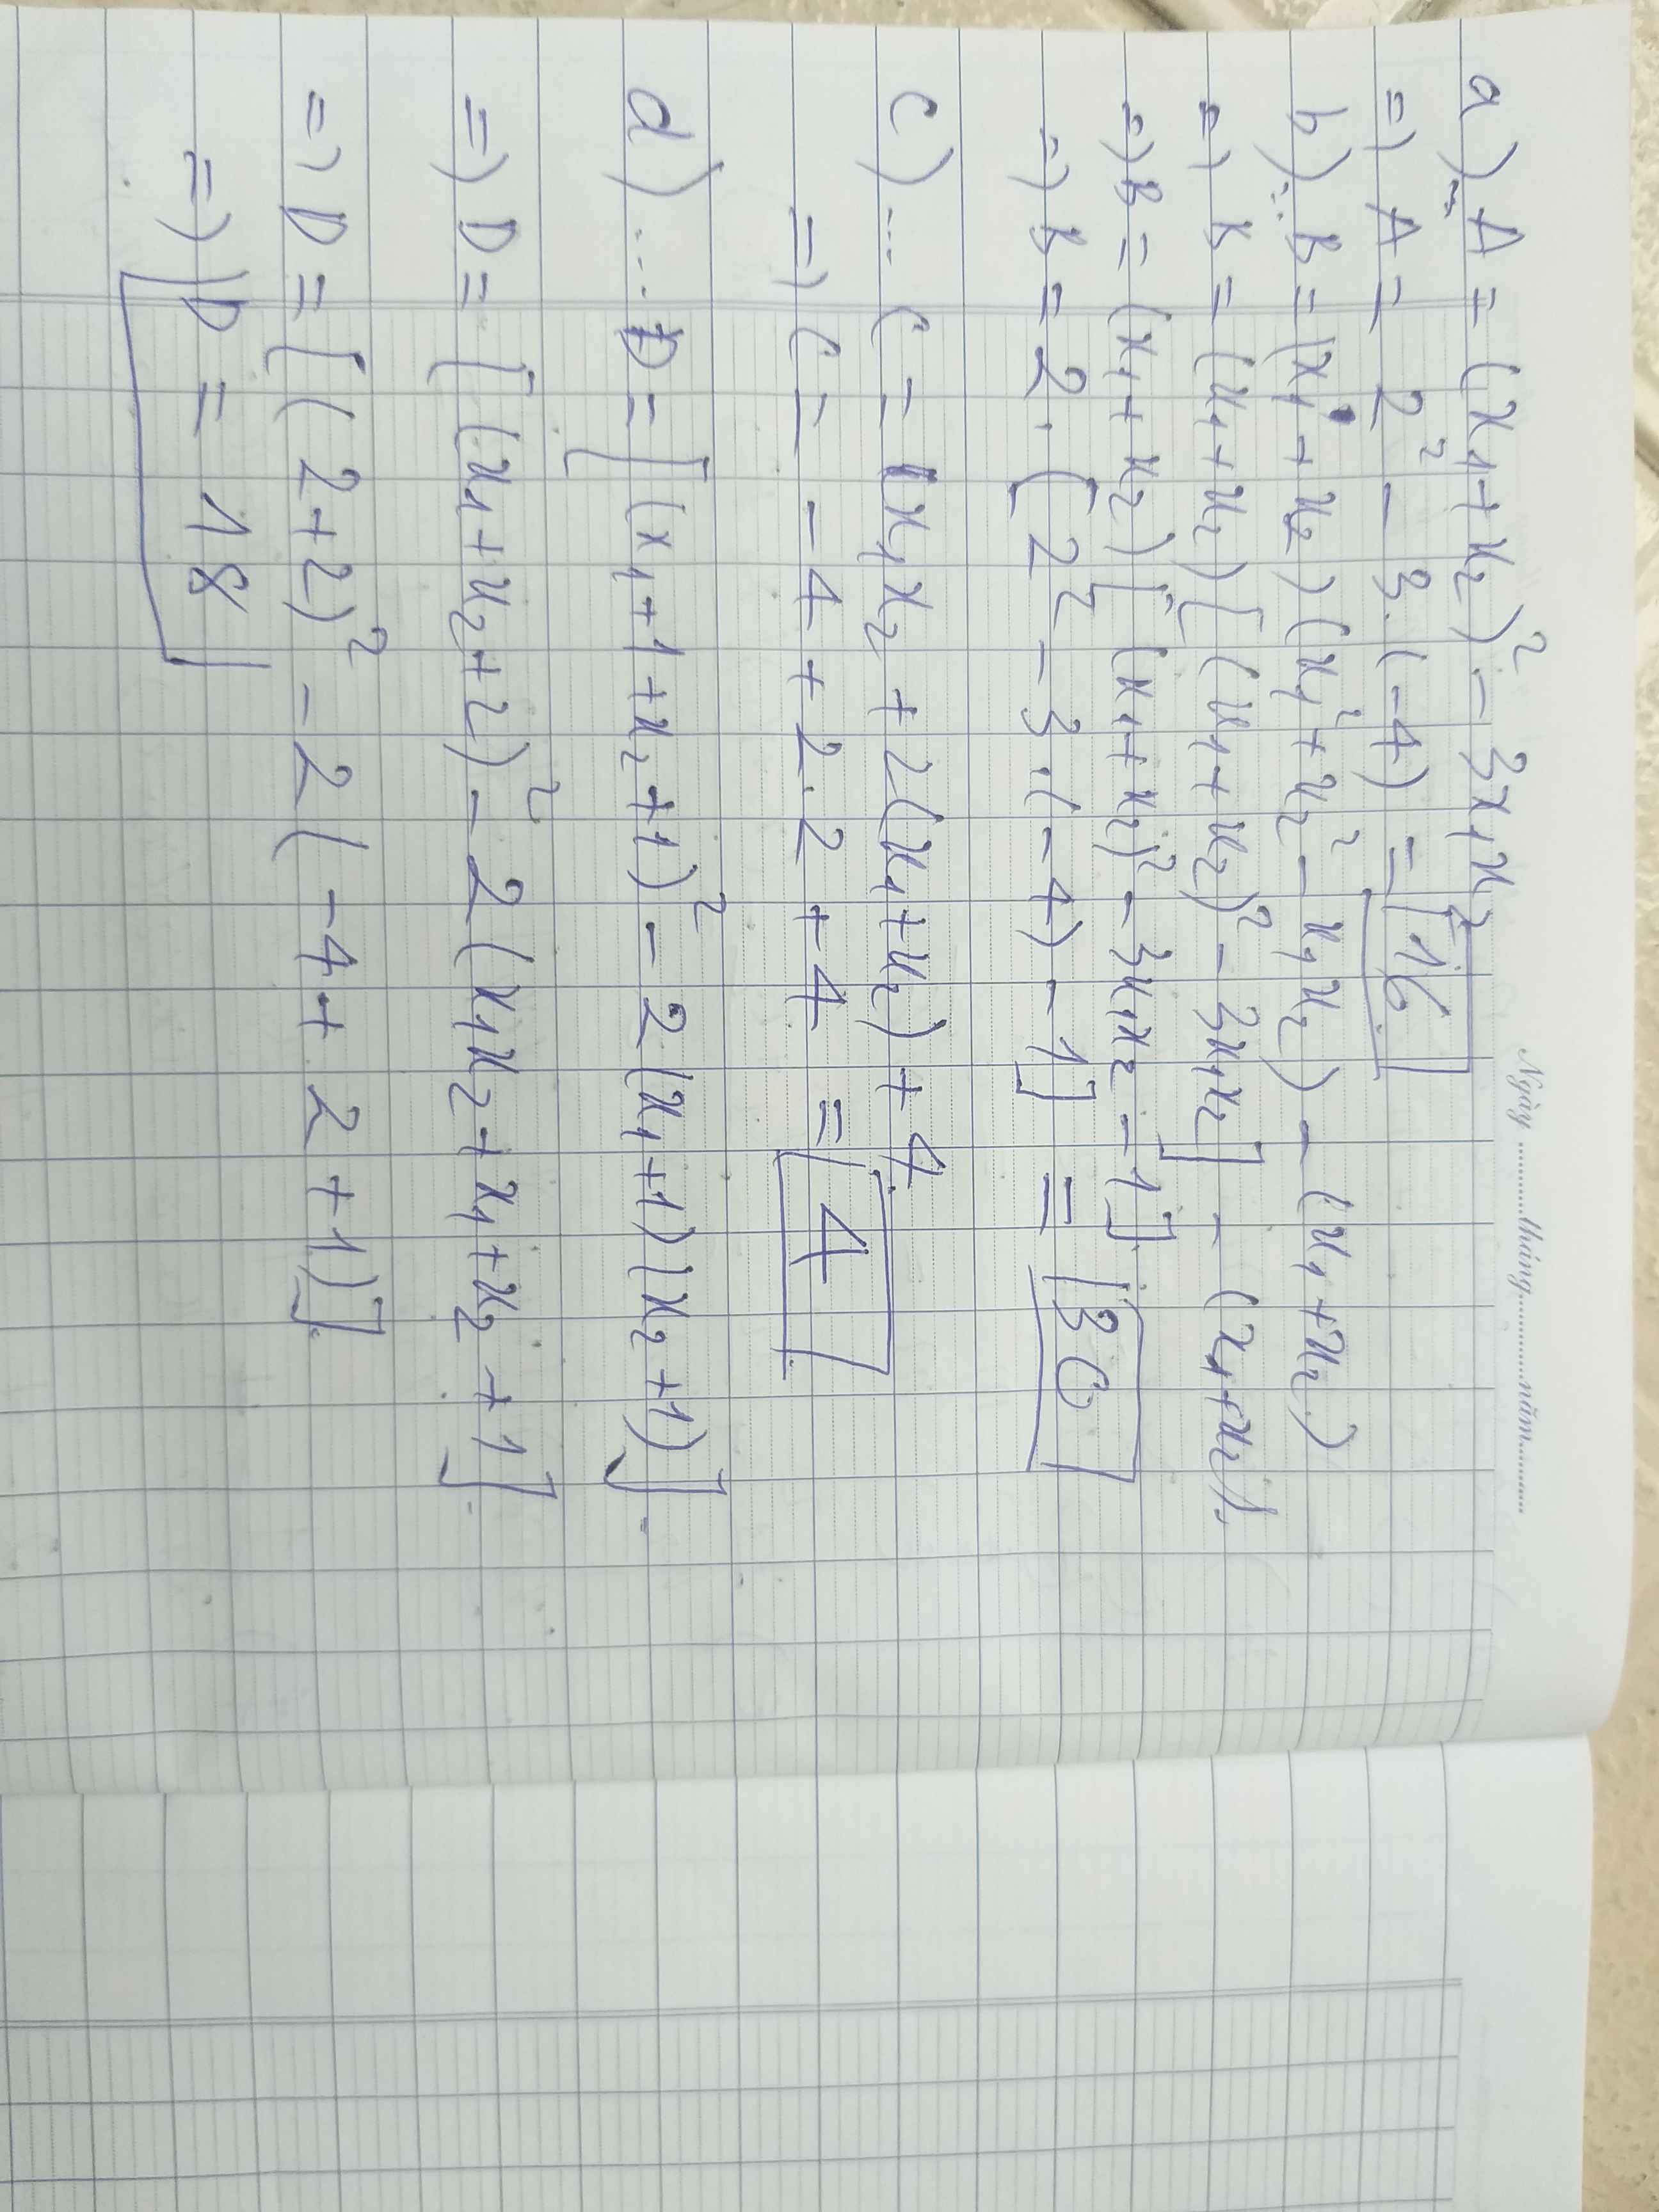 Ngày ..........tháng..........năm..........
a) A = (x₁ + x₂)² - 3x₁x₂
=) A = 2² - 3.(-4) = 16
b) ... B = (x₁ + x₂)(x₁² + x₂² - x₁x₂) - (x₁ + x₂)
=) B = (x₁ + x₂)[(x₁ + x₂)² - 3x₁x₂] - (x₁ + x₂).
=) B = (x₁ + x₂)[(x₁ + x₂)² - 3x₁x₂ - 1].
=) B = 2.[2² - 3.(-4) - 1] = 30
c) ... C = x₁x₂ + 2(x₁ + x₂) + 4.
=) C = -4 + 2.2 + 4 = 4
d) ... D = [(x₁ + 1 + x₂ + 1)² - 2(x₁ + 1)(x₂ + 1)].
=) D = [(x₁ + x₂ + 2)² - 2(x₁x₂ + x₁ + x₂ + 1].
=) D = [(2 + 2)² - 2(-4 + 2 + 1)].
=) D = 18